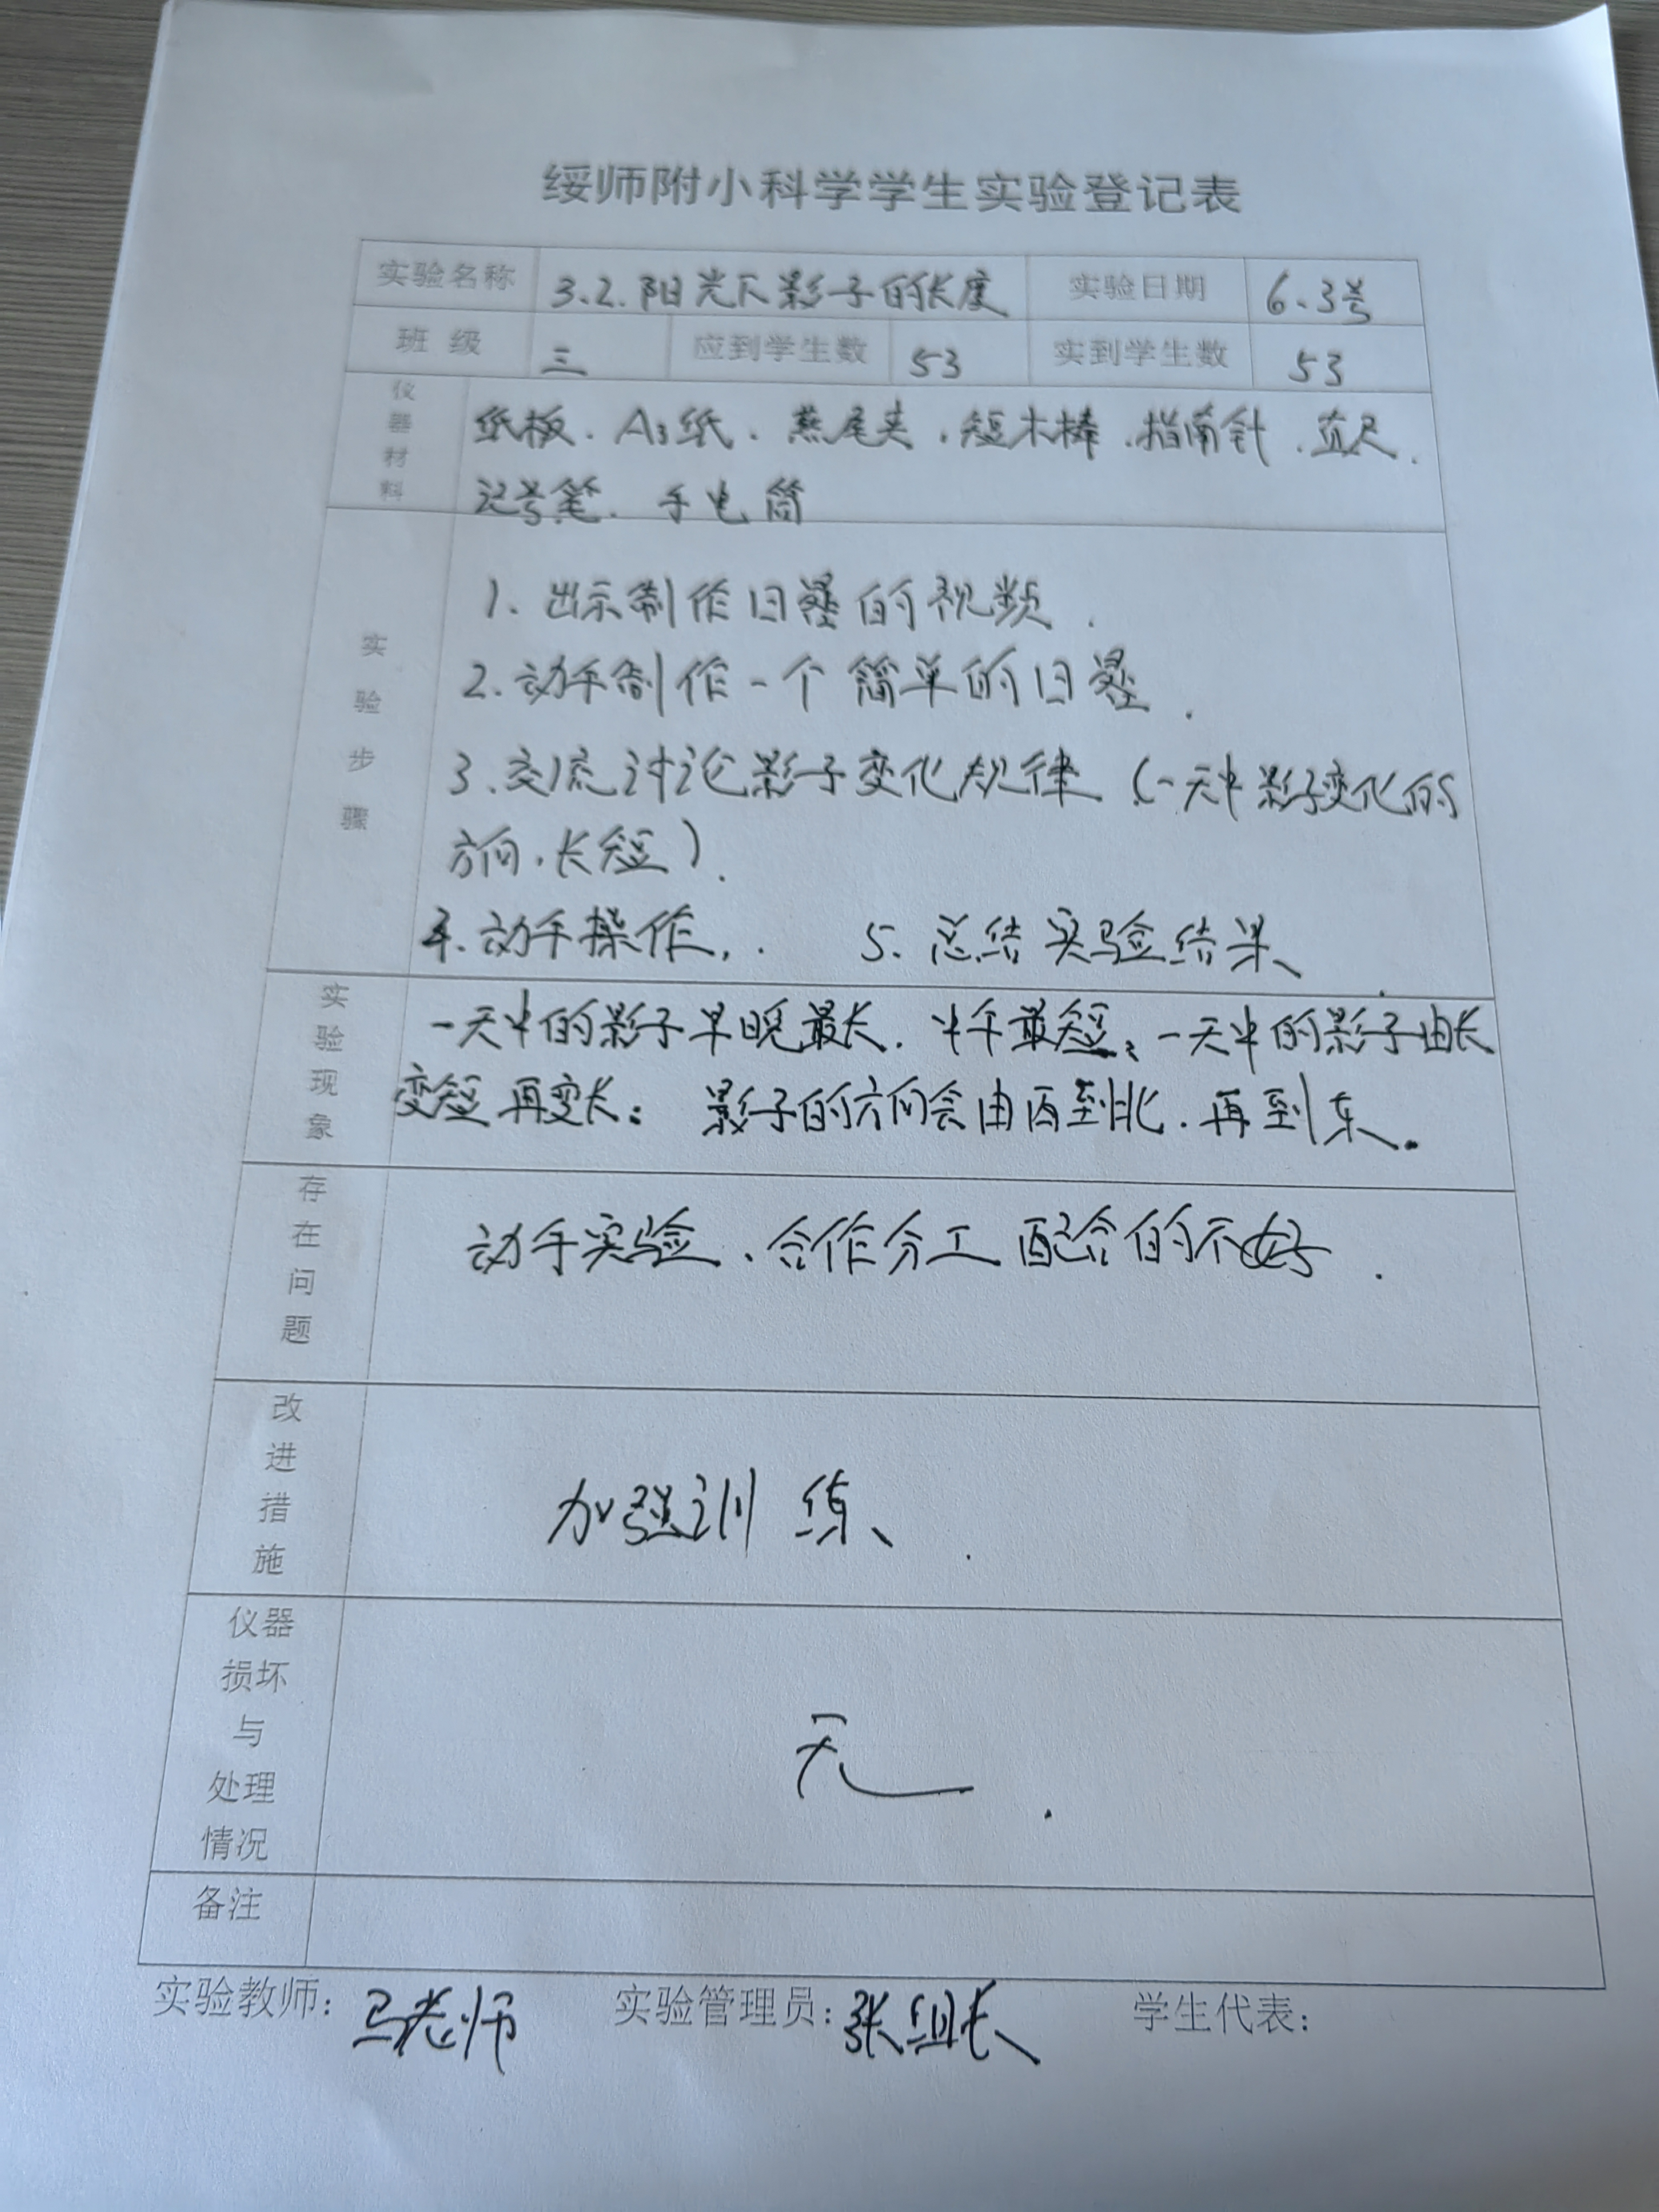 绥师附小科学学生实验登记表
实验名称 3.2.阳光下影子的长度 实验日期 6.3号
班级 三 应到学生数 53 实到学生数 53
仪器材料 纸板、A3纸、燕尾夹、短木棒、指南针、直尺、
记号笔、手电筒
实验步骤
1. 出示制作日晷的视频.
2. 动手制作一个简单的日晷.
3. 交流讨论影子变化规律(一天中影子变化的
方向、长短).
4. 动手操作. 5. 总结实验结果.
实验现象 一天中的影子早晚最长、中午最短；一天中的影子由长
变短再变长； 影子的方向会由西到北、再到东。
存在问题 动手实验、合作分工配合的不好.
改进措施 加强训练.
仪器损坏与处理情况 无.
备注
实验教师：马老师 实验管理员：张组长 学生代表：